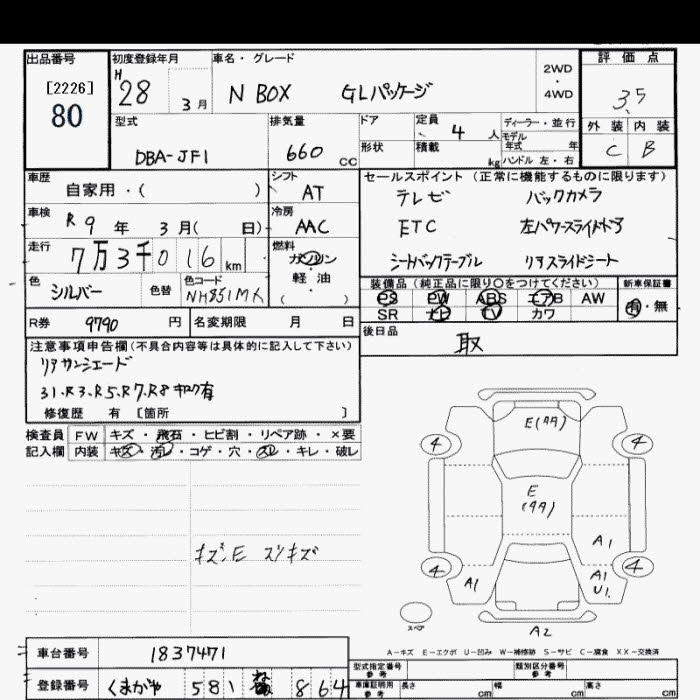 出品番号
[2226]
80
初度登録年月
H 28 3月
車名・グレード
N BOX GLパッケージ
2WD
・
4WD
評価点
3.5
外装 内装
C B
型式
DBA-JF1
排気量
660 CC
ドア
形状
定員 4 人
積載 kg
ディーラー・並行
モデル
年式 年
ハンドル 左・右
車歴
自家用・( )
シフト
AT
車検
R 9 年 3 月( 日)
冷房
AAC
走行
7万3千016 km
燃料
ガソリン
・
軽油
( )
色
シルバー
色替
色コード
NH851MX
セールスポイント (正常に機能するものに限ります)
テレビ バックカメラ
ETC 左パワースライドドア
シートバックテーブル リアスライドシート
装備品(純正品に限り○をつけてください)
新車保証書
PS PW ABS エアB AW
SR ナビ TV カワ
有・無
R券 9790 円
名変期限 月 日
後日品
取
注意事項申告欄(不具合内容等は具体的に記入して下さい)
リアサンシェード
31.R3.R5.R7.R8キロク有
修復歴 有 [箇所 ]
検査員
記入欄
FW キズ・飛石・ヒビ割・リペア跡・×要
内装 キズ・汚レ・コゲ・穴・スレ・キレ・破レ
キズ.E スリキズ
E(タタ)
4 4
E
(タタ)
A1
4 4
A1
A1
U1
スペア
A2
A-キズ E-エクボ U-凹み W-補修跡 S-サビ C-腐食 XX-交換済
車台番号
1837471
登録番号
くまがや 581 864
型式指定番号
参考
類別区分番号
参考
車庫証明用
参考
長さ cm 幅 cm 高さ cm